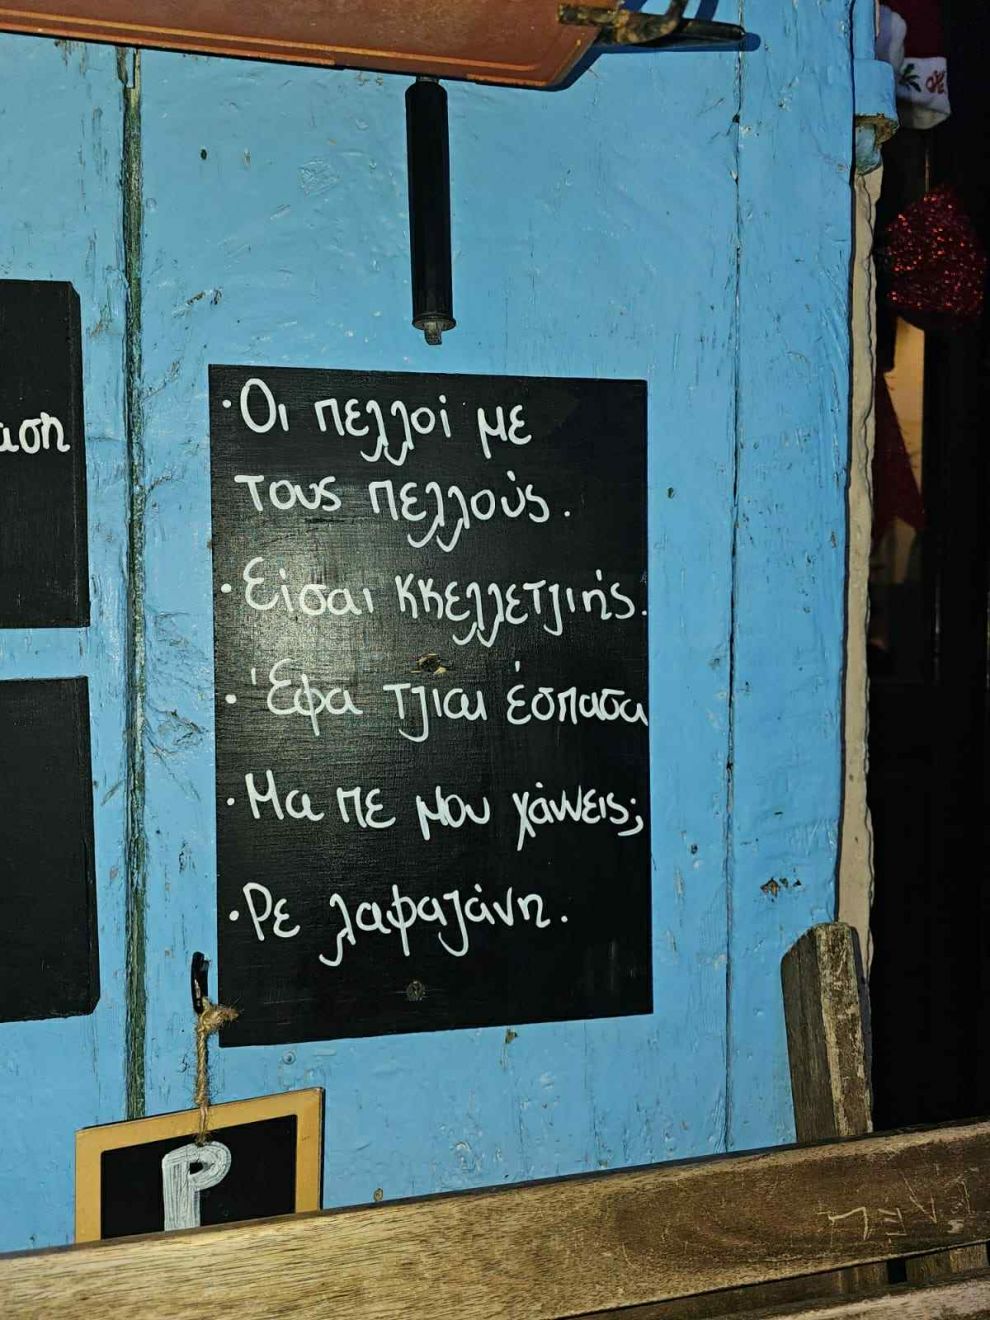 αση
·Οι πελλοί με
τους πελλούς.
·Είσαι κκελλετζιής.
·Έφα τζιαι έσπασα
·Μα πε μου χάννεις;
·Ρε λαφαζάνη.
P